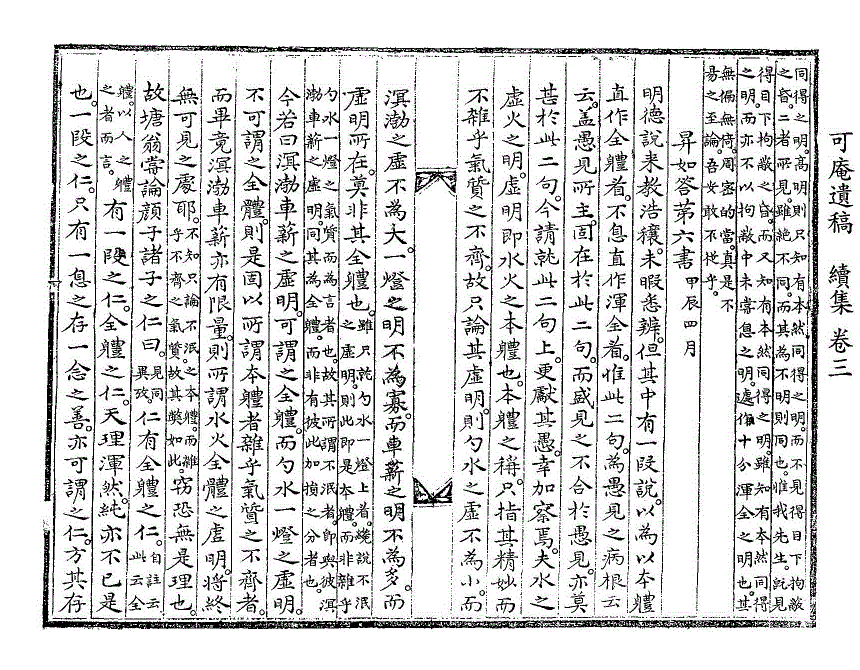 可庵遺稿 續集 卷三
同得之明。高明則只知有本然同得之明。而不見得目下拘蔽
之昏。二者所見。雖絶不同。而其爲不明則同也。惟我先生。旣見
得目下拘蔽之昏。而又知有本然同得之明。雖知有本然同得
之明。而亦不以拘蔽中未嘗息之明。遽作十分渾全之明也。其
無偏無倚。周密的當。眞是不
易之至論。吾安敢不從乎。
昇如答第六書 甲辰四月
明德說來敎浩穰。未暇悉辨。但其中有一段說。以爲以本體
直作全體者。不息直作渾全者。惟此二句。爲愚見之病根云
云。盖愚見所主。固在於此二句。而盛見之不合於愚見。亦莫
甚於此二句。今請就此二句上。更獻其愚。幸加察焉。夫水之
虛火之明。虛明卽水火之本體也。本體之稱。只指其精妙而
不雜乎氣質之不齊。故只論其虛明。則勺水之虛不爲小。而
溟渤之虛不爲大。一燈之明不爲寡。而車薪之明不爲多。而
虛明所在。莫非其全體也。雖只就勺水一燈上看。纔說不泯
之虛明。則此卽是本體。而非雜乎
勺水一燈之氣質而爲言者也。故其所謂不泯者。卽與彼溟
渤車薪之虛明。同其爲全體。而非有彼此加損之分者也。
今若曰溟渤車薪之虛明。可謂之全體。而勺水一燈之虛明。
不可謂之全體。則是固以所謂本體者雜乎氣質之不齊者。
而畢竟溟渤車薪亦有限量。則所謂水火全體之虛明。將終
無可見之處耶。不知只論不泯之本體。而雜
乎不齊之氣質。故其弊如此。竊恐無是理也。
故塘翁嘗論顔子諸子之仁曰。見同異攷仁有全體之仁。自註云此云全
體。以人之體
之者而言。有一段之仁。全體之仁。天理渾然。純亦不已是
也。一段之仁。只有一息之存一念之善。亦可謂之仁。方其存